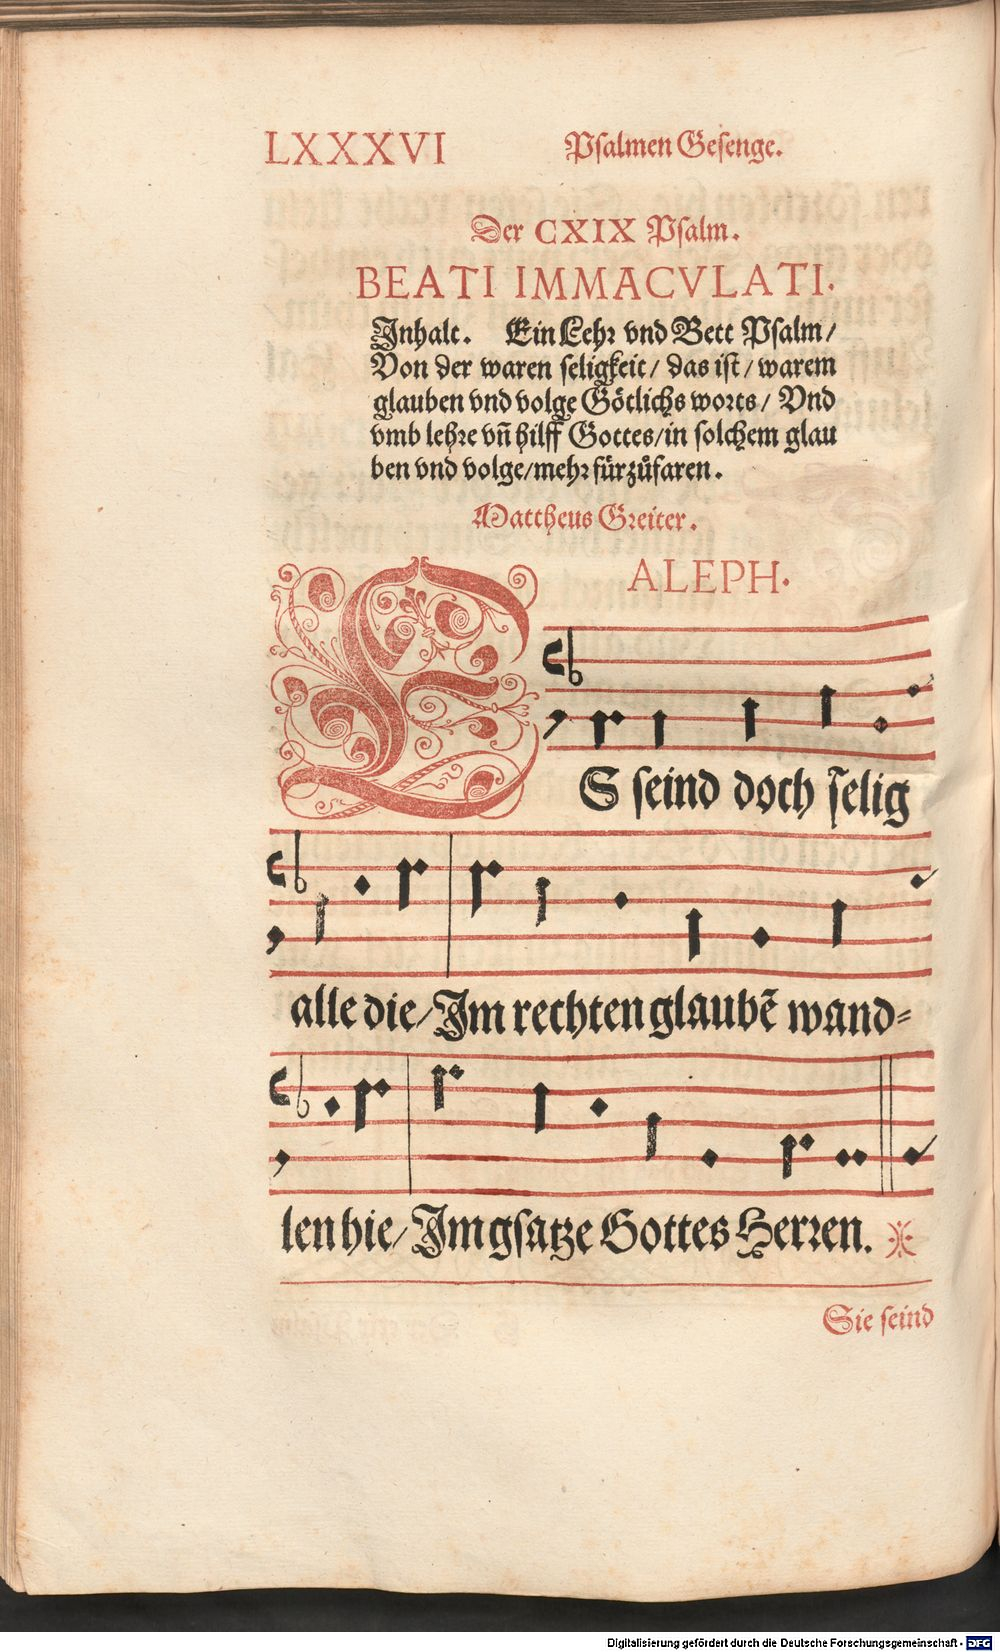 LXXXVI Psalmen Gesenge.
Der CXIX Psalm.
BEATI IMMACVLATI.
Inhalt. Ein Lehr vnd Bett Psalm/
Von der waren seligkeit/ das ist/ warem
glauben vnd volge Götlichs worts/ Vnd
vmb lehre vñ hilff Gottes/in solchem glau
ben vnd volge/mehr fürzůfaren.
Mattheus Greiter.
ALEPH.
ES seind doch selig
alle die/Im rechten glaubẽ wand⸗
len hie/Im gsatze Gottes Herren.
Sie seind
Digitalisierung gefördert durch die Deutsche Forschungsgemeinschaft - DFG